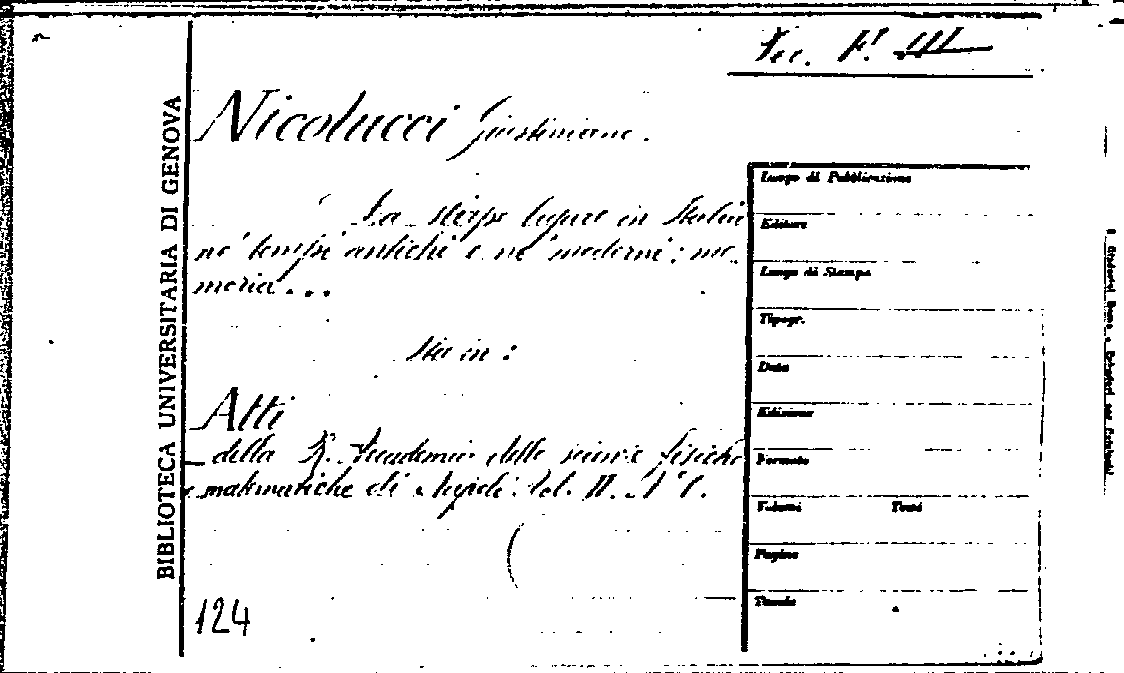 BIBLIOTECA UNIVERSITARIA DI GENOVA
Nicolucci Giustiniano.
La stirpe ligure in Italia
ne' tempi antichi e ne' moderni; me-
moria...
Sta in:
Atti
della R. Accademia delle scienze fisiche
matematiche di Napoli. Vol. II. N° 1.
124
Luogo di Pubblicazione
Editore
Luogo di Stampa
Tipogr.
Data
Edizione
Formato
Volumi Tomi
Pagine